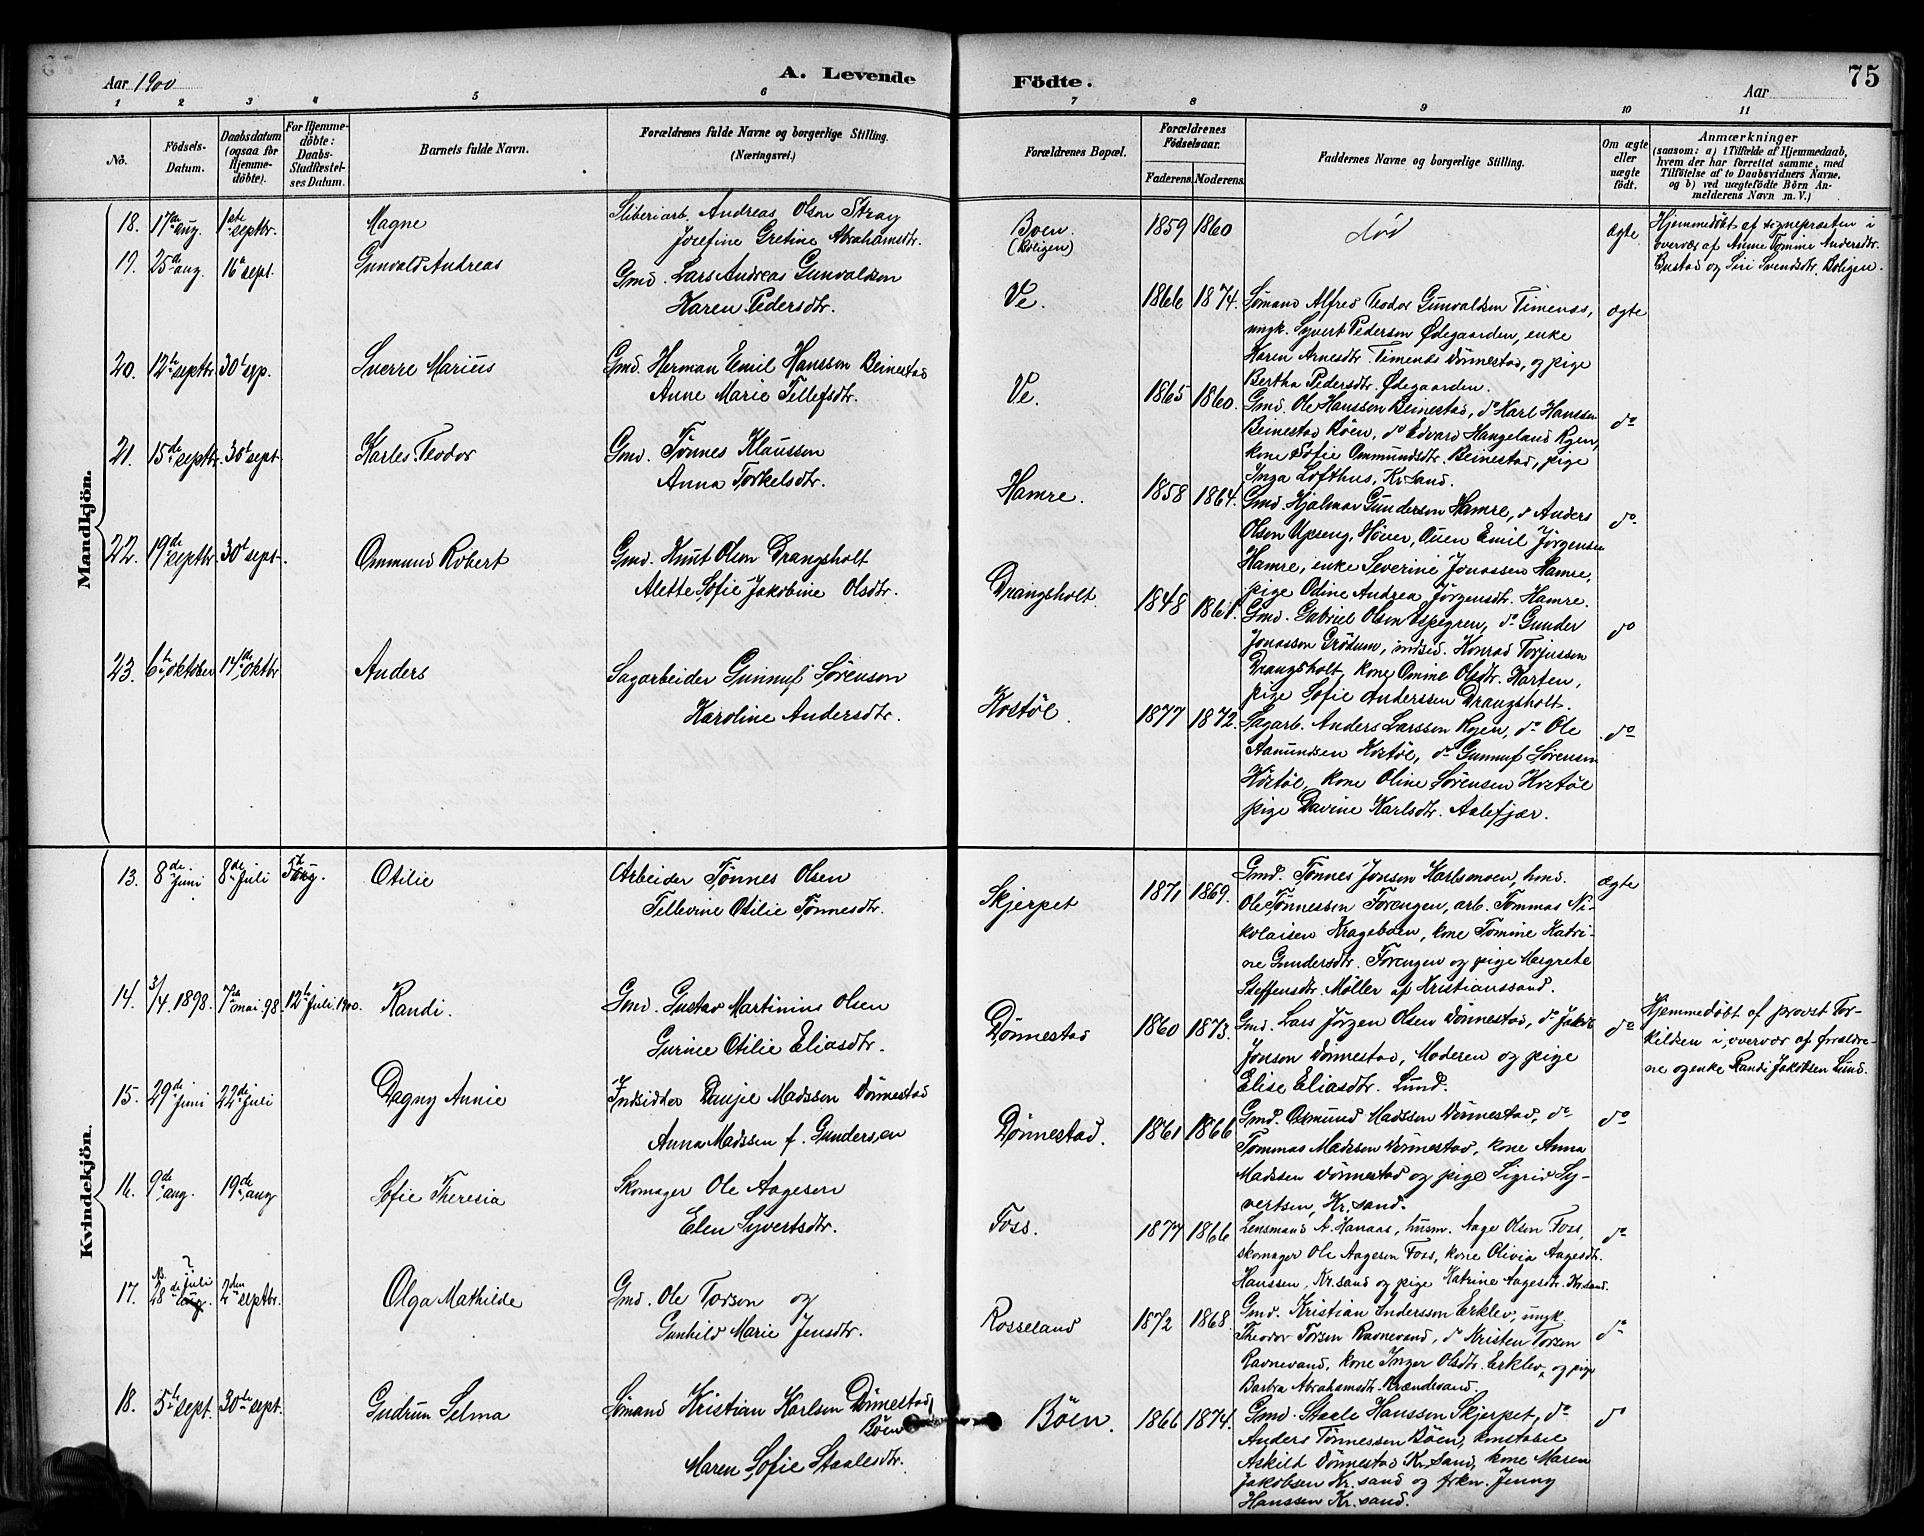 Aar 1900
A. Levende
Födte.
Aar
75
1 2 3 4 5 6 7 8 9 10 11
No.
Födsels-Datum.
Daabsdatum (ogsaa for Hjemmedöbte).
For Hjemmedöbte: Daabs-Stadfæstelses Datum.
Barnets fulde Navn.
Forældrenes fulde Navne og borgerlige Stilling. (Næringsvei.)
Forældrenes Bopæl.
Forældrenes Födselsaar.
Faderens. Moderens.
Faddernes Navne og borgerlige Stilling.
Om ægte eller uægte födt.
Anmærkninger
(saasom: a) i Tilfælde af Hjemmedaab, hvem der har forrettet samme, med Tilföielse af to Daabsvidners Navne. og b) ved uægtefödte Börn Anmelderens Navn m. V.)
Mandkjön.
18. 17de aug. 1ste septbr. Magne
Sliberiarb. Andreas Olsen Stray
Josefine Gretine Abrahamsdtr.
Boen. (Boligen) 1859 1860 død ægte
Hjemmedøbt af sognepræsten i
overvær af Anne Tomine Andersdtr.
Bustad og Siri Svendsdtr. Boligen.
19. 25de aug. 16de sept. Gunvald Andreas
Gmd. Lars Andreas Gunvaldsen
Karen Pedersdtr.
Ve. 1866 1874.
Sømand Alfred Teodor Gunvaldsen Timenes,
ungk. Syvert Pedersen Ødegaarden, enke
Karen Arnesdtr. Timenes Dønnestad, og pige
Bertha Pedersdtr. Ødegaarden.
ægte
20. 12te septbr. 30te sep. Sverre Marius
Gmd. Herman Emil Hansson Beinestad
Anne Marie Tellefsdtr.
Ve. 1865 1860.
Gmd. Ole Hansson Beinestad, do Karl Hanssen
Beinestad Bøen, do Edvard Hangeland Ryen,
kone Sofie Ommundsdtr. Beinestad, pige
Inga Lofthus, Kr.sand.
do
21. 15de septbr. 30te sept. Karles Teodor
Gmd. Tønnes Klausson
Anna Torkelsdtr.
Hamre. 1858 1864.
Gmd. Hjalmar Gunderson Hamre, do Anders
Olsen Upseng, Høver, Ouen Emil Jørgensen
Hamre, enke Severine Jonassen Hamre,
pige Odine Andrea Jørgensdtr. Hamre.
do
22. 19de septbr. 30te sept. Ommund Robert
Gmd. Knut Olsen Drangsholt
Alette Sofie Jakobine Olsdtr.
Drangsholt. 1848 1861.
Gmd. Gabriel Olsen Espegren, do Gunder
Jonassen Grødum, indsid. Konrad Torjussen
Drangsholt, kone Omine Olsdtr. Harten,
pige Sofie Anderssen Drangsholt.
do
23. 6te oktober 14de oktbr. Anders
Sagarbeider Gunnuf Sørenson
Karoline Andersdtr.
Kostøl. 1877 1872.
Sagarb. Anders Larsson Ryen, do Ole
Aamundsen Kostøl, do Gunnuf Sørensen
Kostøl, kone Oline Sørensen Kostøl
pige Davine Karlsdtr. Aalefjær.
do
Kvindekjön.
13. 8de Juni 8de Juli 5te aug. Otilie
Arbeider Tønnes Olsen
Tellevine Otilie Tønnesdtr.
Skjerpet 1871 1869.
Gmd. Tønnes Jonsen Karlsmoen, hmd.
Ole Tønnessen Forengen, arb. Tommas Ni-
kolaisen Krageboen, kone Tomine Katri-
ne Gundersdtr. Forengen og pige Margrete
Steffensdtr. Møller af Kristianssand.
ægte
14. 3/4 1898. 7de mai 98. 12te Juli 1900. Randi.
Gmd. Gustav Martinius Olsen
Gurine Otilie Eliasdtr.
Dønnestad 1860 1873.
Gmd. Lars Jørgen Olsen Dønnestad, do Jakob
Jonson Dønnestad, Moderen og pige
Elise Eliasdtr. Lund.
do
Hjemmedøbt af provst Tor-
kildsen i overvær af forældre-
ne og enke Randi Jakobsen Lund.
15. 29de Juni 22de Juli Dagny Annie
Indsidder Danjel Madssen Dønnestad
Anna Madssen f. Gundersen
Dønnestad. 1861 1866
Gmd. Osmund Madssen Dønnestad, do
Tommas Madssen Dønnestad, kone Anna
Madssen Dønnestad og pige Sigrid Sy-
vertsen, Kr.sand.
do
16. 9de aug. 19de aug Sofie Theresia
Skomager Ole Aagesen
Elen Syvertsdtr.
Foss. 1877 1866
Lensmand A. Hanaas, husm. Aage Olsen Foss,
skomager Ole Aagesen Foss, kone Olivia Aagesdtr.
Hanssen, Kr.sand og pige Katrine Aagesdtr. Kr.sand.
do
17. 28de Juli ? aug. 2den septbr. Olga Mathilde
Gmd. Ole Torson og
Gunhild Marie Jensdtr.
Rosseland 1872 1868.
Gmd. Kristian Andersson Erklev, ungk.
Theodor Torsen Ravnevand, do Kristen Torsen
Ravnevand, kone Inger Olsdtr. Erklev, og pige
Barbra Abrahamsdtr.
do
18. 5te sept. 30te sept. Gudrun Selma
Sømand Kristian Karlsen Dønnestad
Bøen
Maren Sofie Staalesdtr.
Bøen. 1866 1874.
Gmd. Staale Hanssen Skjerpet, do
Anders Tønnessen Bøen, konstabel
Askild Dønnestad Kr.sand, kone Maren
Jakobsen Kr.sand og frkn. Jenny
Hanssen Kr.sand.
do